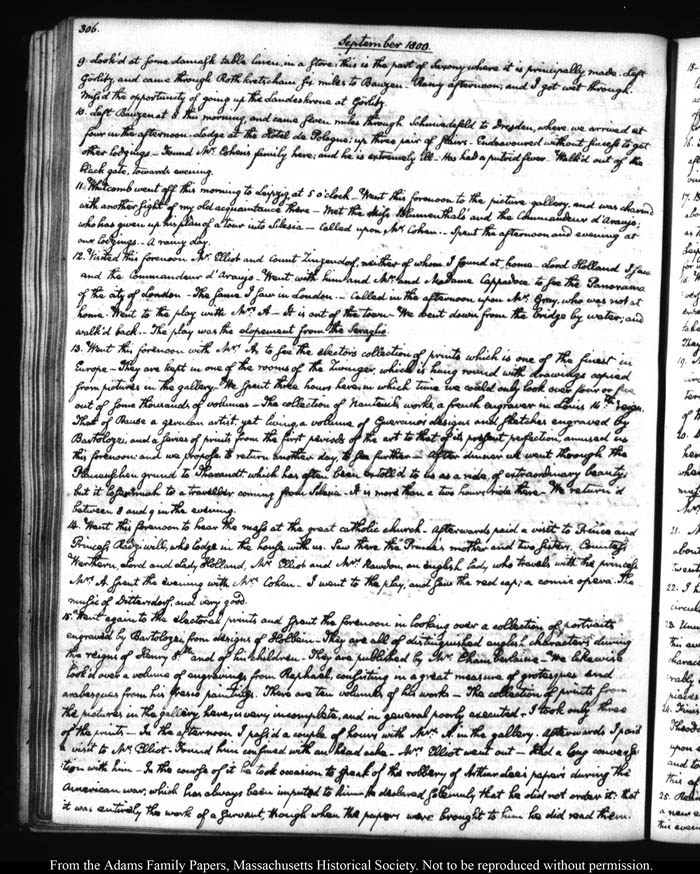 306.
September 1800.
9. Look'd at some damask table linen, in a store; this is the part of Saxony where it is principally made. Left
Görlitz, and came through Rothkretscham six miles to Bauzen. Rainy afternoon; and I got wet through.
Miss'd the opportunity of going up the Landeskrone at Görlitz.
10. Left Bauzen at 5 this morning, and came seven miles through Schmiedefeld to Dresden, where we arrived at
four in the afternoon. Lodge at the Hotel de Pologne; up three pair of stairs. Endeavoured without success to get
other lodgings. Found Mr. Cohen's family here; and he is extremely ill. Has had a putrid fever. Walk'd out of the
black gate, towards evening.
11. Whitcomb went off this morning to Leipzig at 5 o'clock. Went this forenoon to the picture gallery, and was charm'd
with another sight of my old acquaintance there. Met the Miss Blumenthals and the Commandeur d'Araujo;
who has given up his plan of a tour into Silesia. Called upon Mrs. Cohen. Spent the afternoon and evening at
our lodgings. A rainy day.
12. Visited this forenoon Mr. Elliot and Count Zinzendorf, neither of whom I found at home. Lord Holland I saw
and the Commandeur d'Araujo. Went with him and Mr. and Madame Cappadoce to see the Panorama
of the city of London. The same I saw in London. Called in the afternoon upon Mr. Gray, who was not at
home. Went to the play with Mrs. A. It is out of the town. We went down from the bridge by water; and
walk'd back. The play was the elopement from the Seraglio.
13. Went this forenoon with Mrs. A. to see the elector's collection of prints which is one of the finest in
Europe. They are kept in one of the rooms of the Zwinger, which is hung round with drawings copied
from pictures in the gallery. We spent three hours here, in which time we could only look over four or five
out of some thousands of volumes. The collection of Nanteuil's works, a french engraver in Louis 14th's reign.
That of Bause a german artist, yet living, a volume of Guercino's designs and sketches engraved by
Bartolozzi, and a series of prints from the first periods of the art to that of its present perfection, amused us
this forenoon: and we propose to return another day, to see further. After dinner we went through the
Plauischen grund to Tharandt which has often been extoll'd to us as a ride, of extraordinary beauty;
but it loses much to a traveller coming from Silesia. It is more than a two hours ride there. We return'd
between 8 and 9 in the evening.
14. Went this forenoon to hear the mass at the great catholic church. Afterwards paid a visit to Prince and
Princess Radziwill, who lodge in the house with us. Saw there the Prince's mother and two sisters, Countess
Werthern, Lord and Lady Holland, Mr. Elliot and Mrs. Rawdon, an english lady, who travels with the princess.
Mrs. A. spent the evening with Mrs. Cohen. I went to the play, and saw the red cap; a comic opera. The
music of Dittersdorf, and very good.
15. Went again to the electoral prints and spent the forenoon in looking over a collection of portraits
engraved by Bartolozzi, from designs of Holbein. They are all of distinguished english characters, during
the reigns of Henry 8th. and of his children. They are published by Mr. Chamberlaine. We likewise
look'd over a volume of engravings from Raphael, consisting in a great measure of grotesques and
arabesques from his fresco paintings. There are ten volumes of his works. The collection of prints from
the pictures in the gallery here, is very incomplete, and in general poorly executed. I took only three
of the prints. In the afternoon I pass'd a couple of hours with Mrs. A. in the gallery. Afterwards I paid
a visit to Mr. Elliot. Found him confined with an head ache. Mrs. Elliot went out. Had a long conversa-
ition with him. In the course of it he took occasion to speak of the robbery of Arthur Lee's papers during the
American war, which has always been imputed to him. He declared solemnly that he did not order it: that
it was entirely the work of a servant, though when the papers were brought to him he did read them.
From the Adams Family Papers, Massachusetts Historical Society. Not to be reproduced without permission.